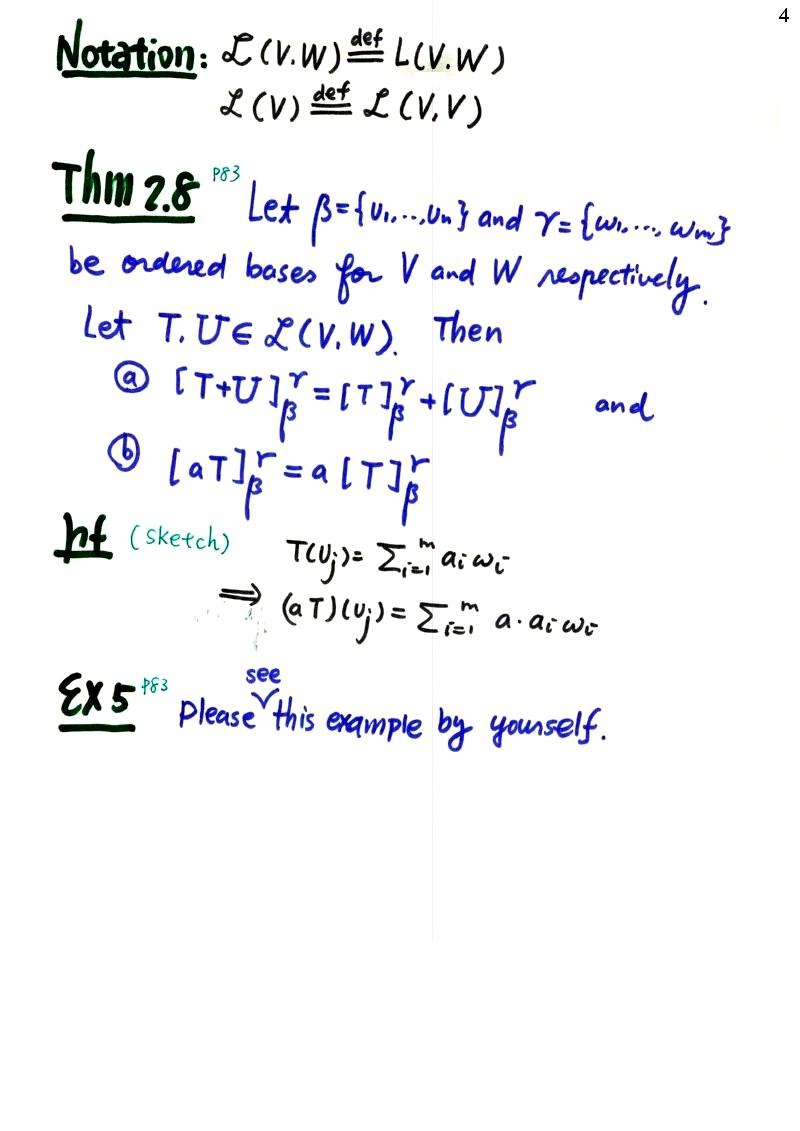 4
Notation: ℒ(V.W) def= L(V.W)
ℒ(V) def= ℒ(V,V)
Thm 2.8 P83 Let β={υ₁,...,υₙ} and γ={ω₁,..., ωₘ}
be ordered bases for V and W respectively.
Let T, U ∈ ℒ(V,W). Then
ⓐ [T+U]_β^γ = [T]_β^γ + [U]_β^γ and
ⓑ [aT]_β^γ = a[T]_β^γ
pf (sketch) T(υⱼ)= Σᵢ₌₁ᵐ aᵢωᵢ
⟹ (aT)(υⱼ)= Σᵢ₌₁ᵐ a·aᵢωᵢ
EX 5 P83 Please see this example by yourself.